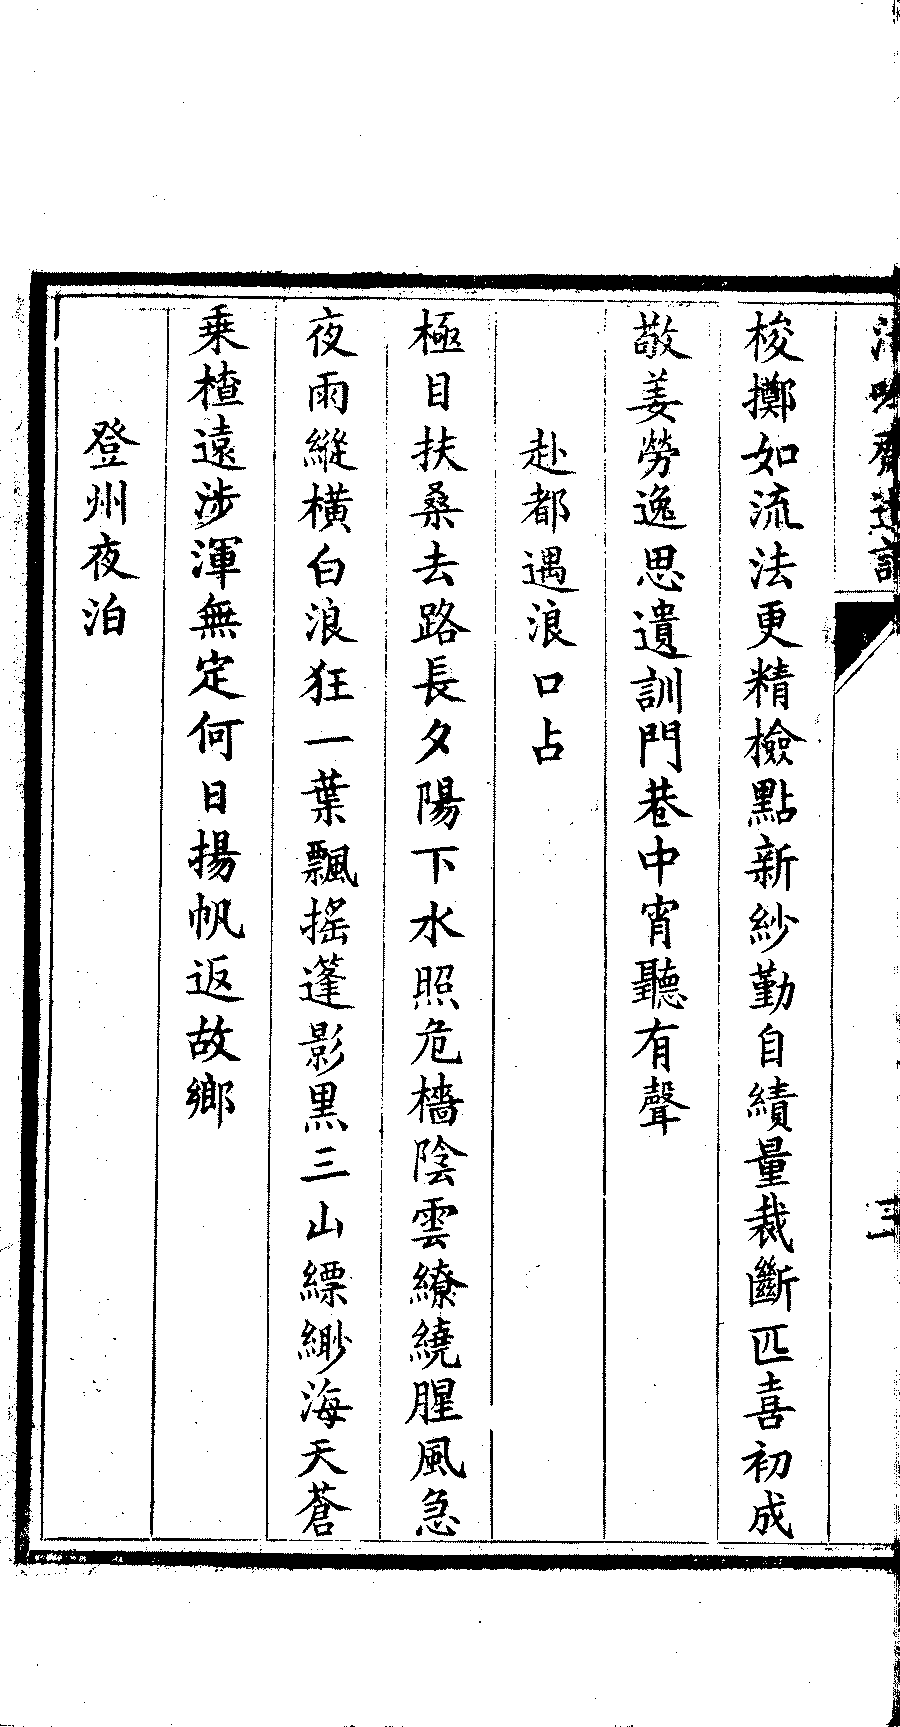 梭擲如流法更精檢點新紗勤自績量裁斷匹喜初成
敬姜勞逸思遺訓門巷中宵聽有聲
赴都遇浪口占
極目扶桑去路長夕陽下水照危檣陰雲繚繞腥風急
夜雨縱橫白浪狂一葉飄搖蓬影黑三山縹緲海天蒼
乘楂遠涉渾無定何日揚帆返故鄉
登州夜泊